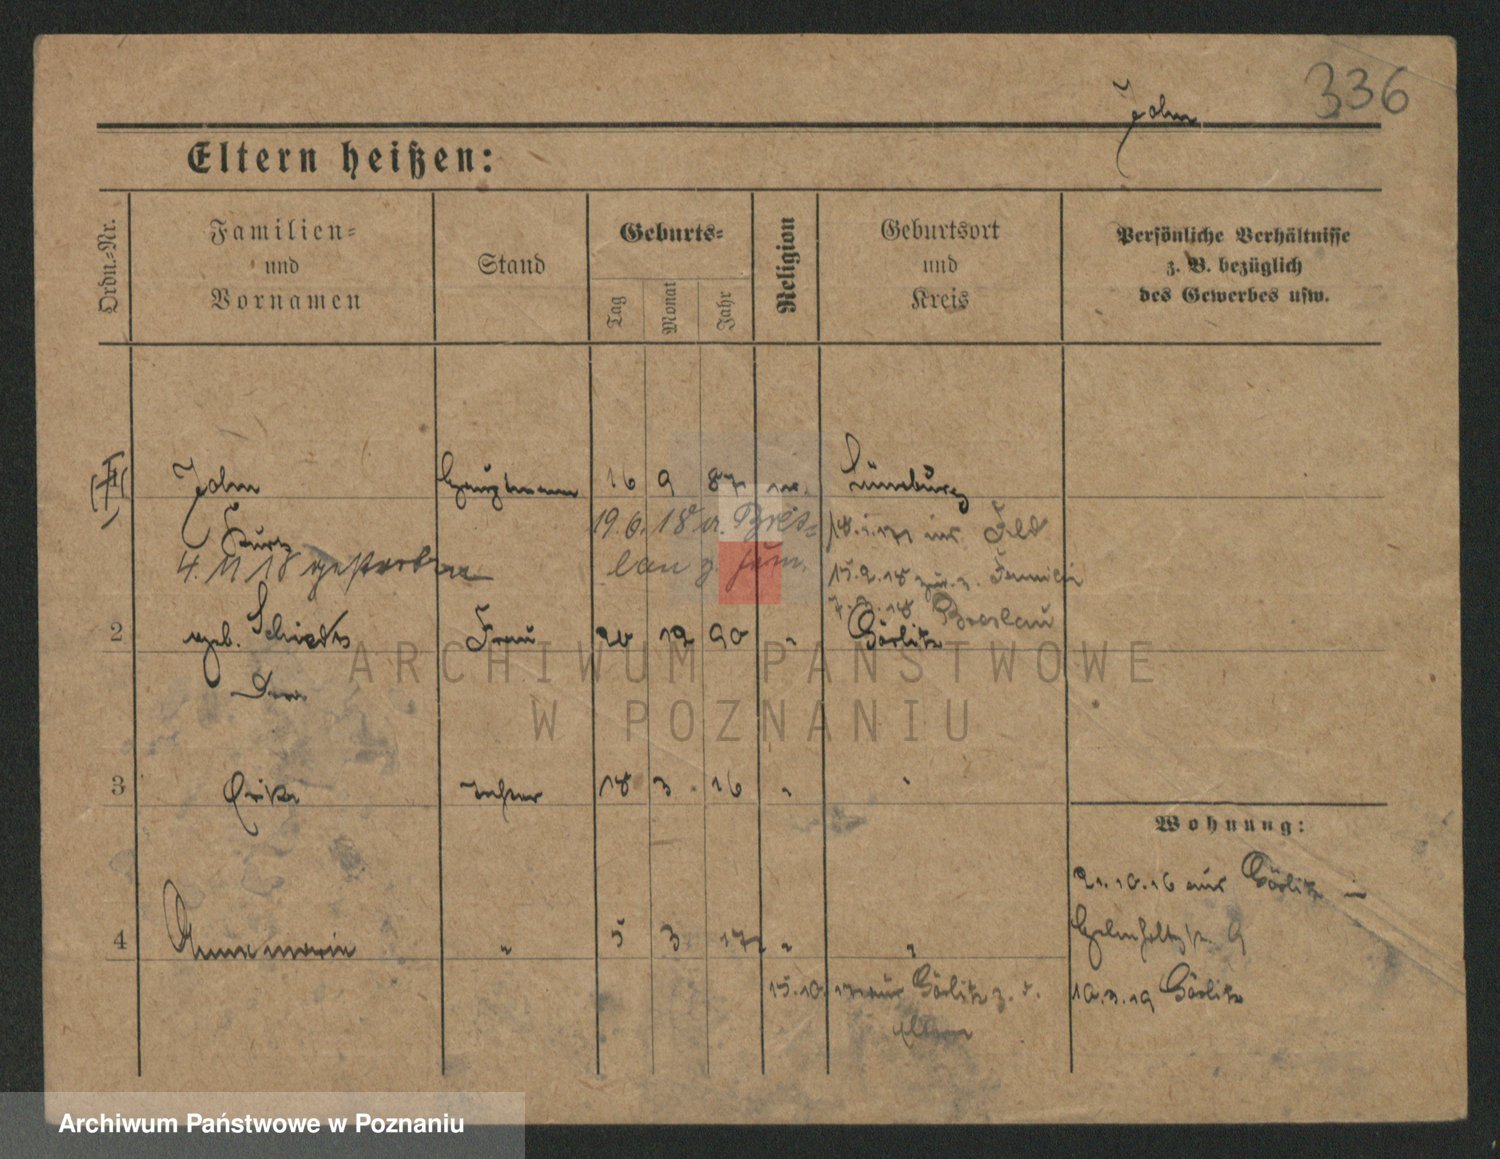 336
John
Eltern heißen:
Ordn.=Nr.
Familien=
und
Vornamen
Stand
Geburts=
Tag
Monat
Jahr
Religion
Geburtsort
und
Kreis
Persönliche Verhältnisse
z. B. bezüglich
des Gewerbes usw.
John Hauptmann 16 9 87 Lüneburg
Kurt
19.6.18 v. Bres=
lau z. Fam.
18.1.17 ins Feld
4.11.18 gestorben
15.2.18 zur. z. Familie
Breslau
2 geb. Frau 20 12 90 " Görlitz
3 Erika Tochter 18 3 16 " "
Wohnung:
21.10.16 aus Görlitz in
4 Annemarie " 5 3 17 " "
9
15.10.17 aus Görlitz z. d.
Eltern
10.3.19 Görlitz
ARCHIWUM PAŃSTWOWE
W POZNANIU
Archiwum Państwowe w Poznaniu